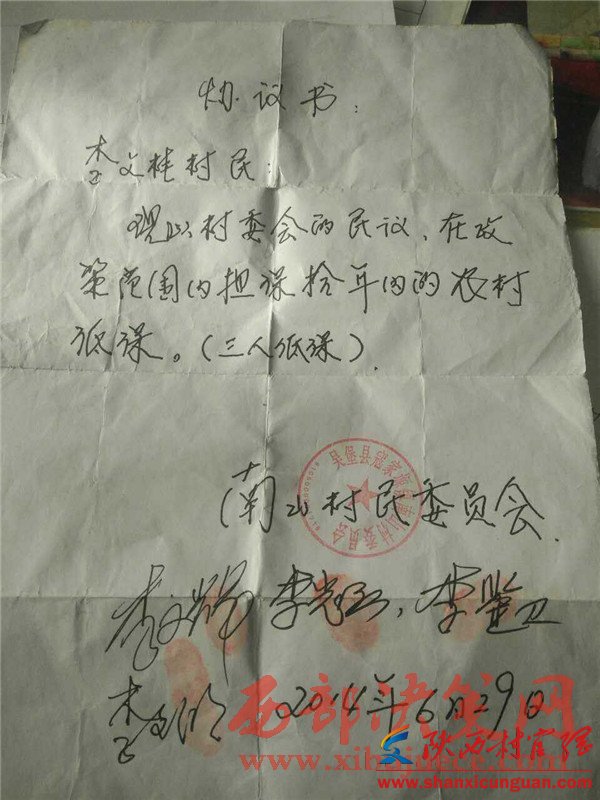 协议书:
李文桂村民:
现以村委会的民议、在政
策范围内担保拾年内的农村
低保。(三人低保)
南山村民委员会.
吴堡县寇家塬镇南山村委员会
2014年6月29日
西部决策网
www.xibujuece.com
陕西村官网
www.shanxicunguan.com